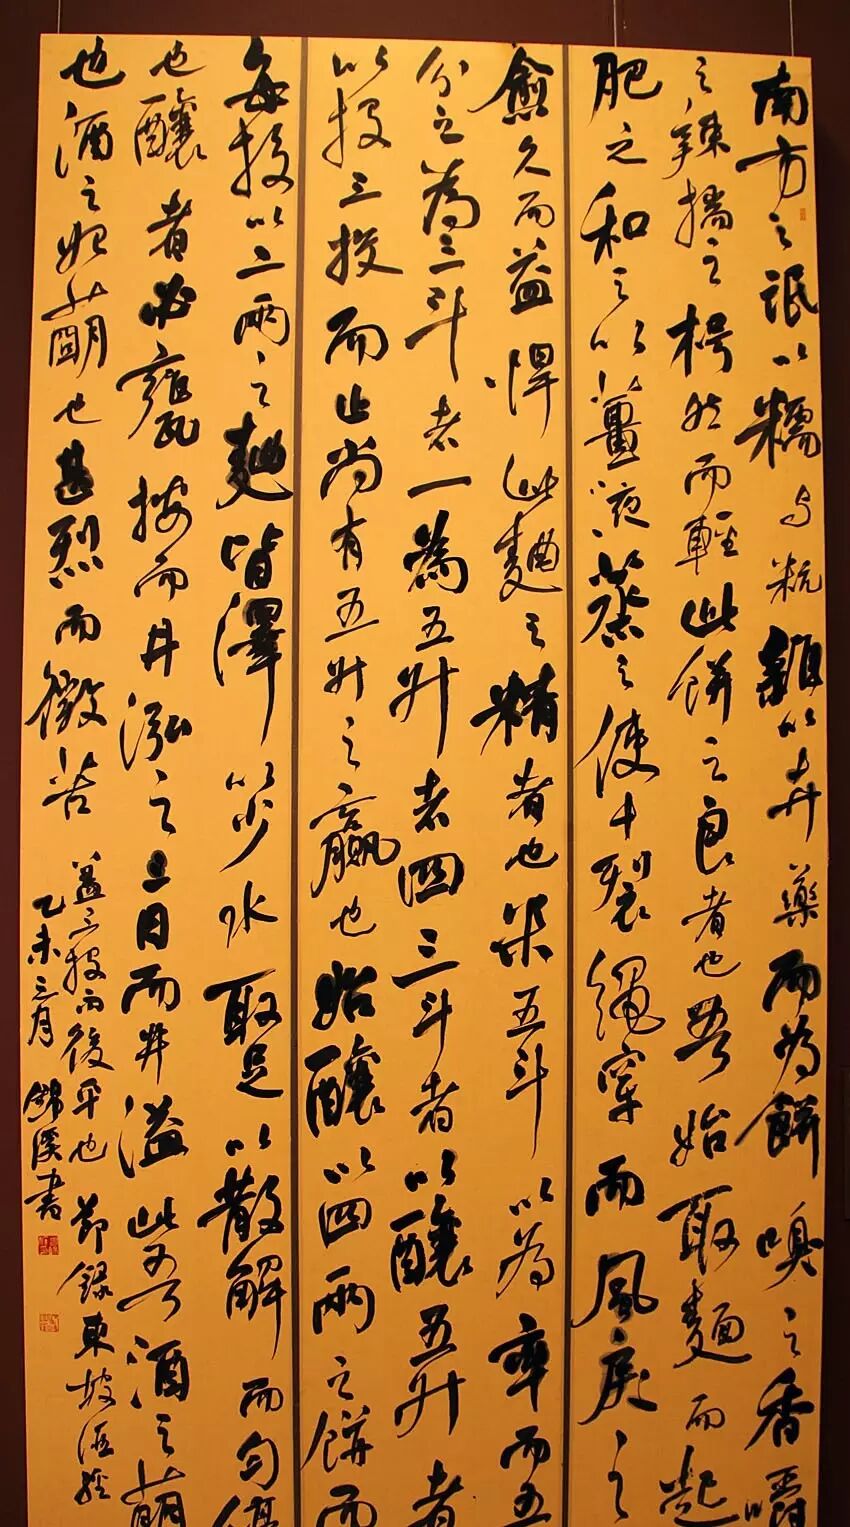 南方之氓以糯与粇雜以卉藥而为餅嗅之香嚼
之辣揣之枵然而輕此餅之良者也吾始取麵而起
肥之和之以薑液蒸之使十裂繩穿而風戾之
愈久而益悍此麯之精者也米五斗以為率而五
分之為三斗者一為五升者四三斗者以釀五升者
以投三投而止尚有五升之贏也始釀以四兩之餅而
每投以二兩之麯皆澤以少水取足以散解而匀停
也釀者必甕按而井泓之三日而井溢此吾酒之萌
也酒之始萌也甚烈而微苦蓋三投而後平也節録東坡酒經
乙未三月錦溪書